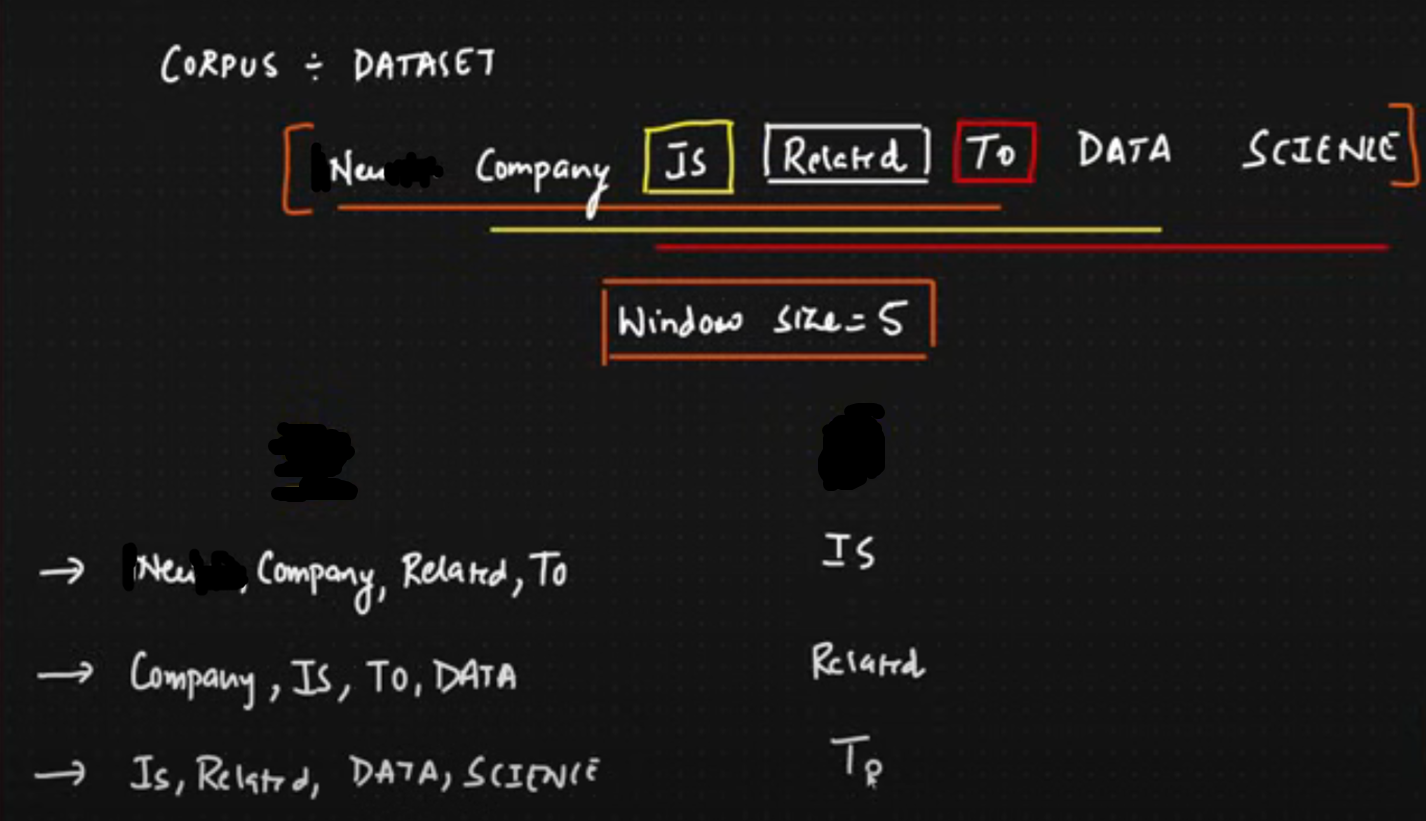 CORPUS ÷ DATASET
[ New Company Is Related To DATA SCIENCE ]
Window size = 5
→ New, Company, Related, To IS
→ Company, Is, To, DATA Related
→ Is, Related, DATA, SCIENCE To